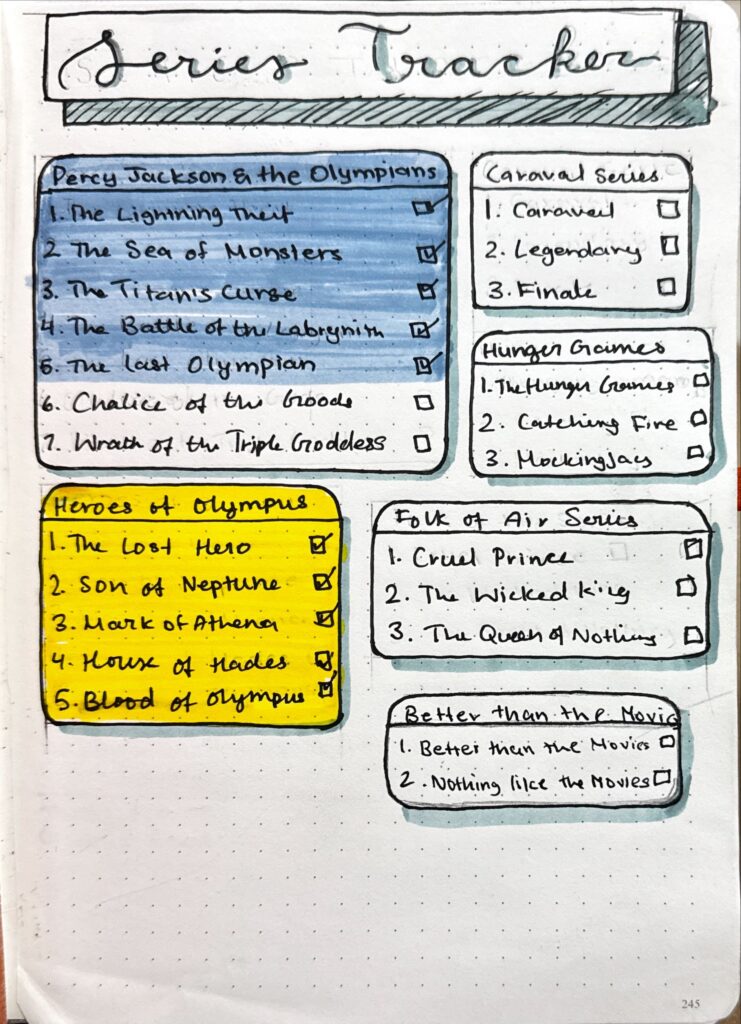 Series Tracker
Percy Jackson & the Olympians
1. The Lightning Theif
2 The Sea of Monsters
3. The Titan's Curse
4. The Battle of the Labrynith
5. The last Olympian
6. Chalice of the Goods
7. Wrath of the Triple Goddess
Heroes of Olympus
1. The Lost Hero
2. Son of Neptune
3. Mark of Athena
4. House of Hades
5. Blood of Olympus
Caraval Series
1. Caraval
2. Legendary
3. Finale
Hunger Games
1. The Hunger Games
2. Catching Fire
3. Mockingjay
Folk of Air Series
1. Cruel Prince
2. The Wicked King
3. The Queen of Nothing
Better than the Movie
1. Better than the Movies
2. Nothing like the Movies
245